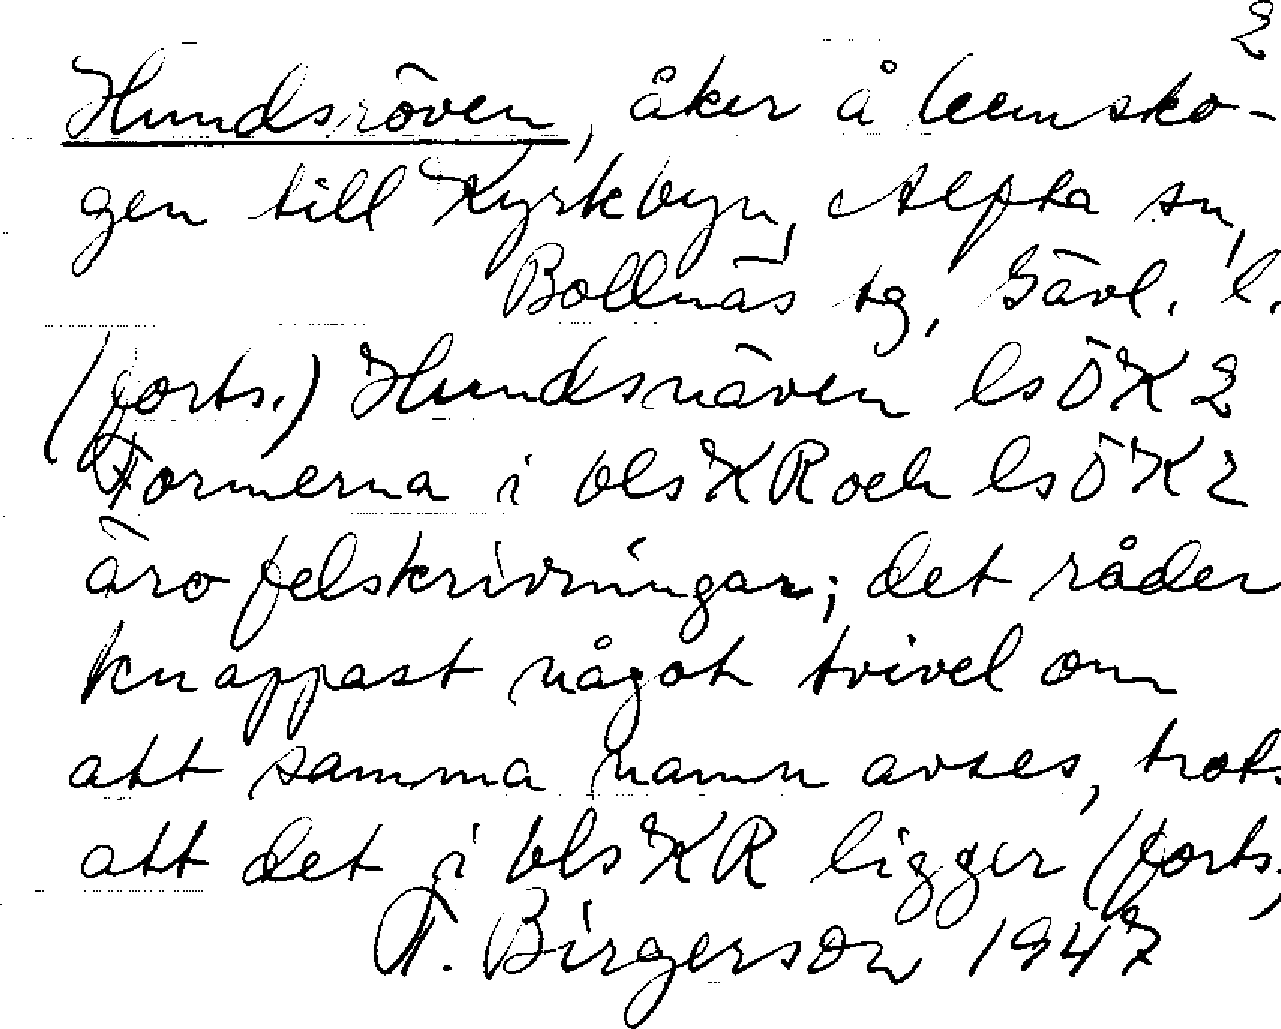 2
Hundsröven, åker å hemsko-
gen till Kyrkbyn, Alfta sn,
Bollnäs tg, Gävl. l.
(forts.) Hundsnäven ls ÖK 2
Formerna i bls KR och ls ÖK 2
äro felskrivningar; det råder
knappast något tvivel om
att samma namn avses, trots
att det i bls KR ligger (forts.)
F. Birgerson 1947